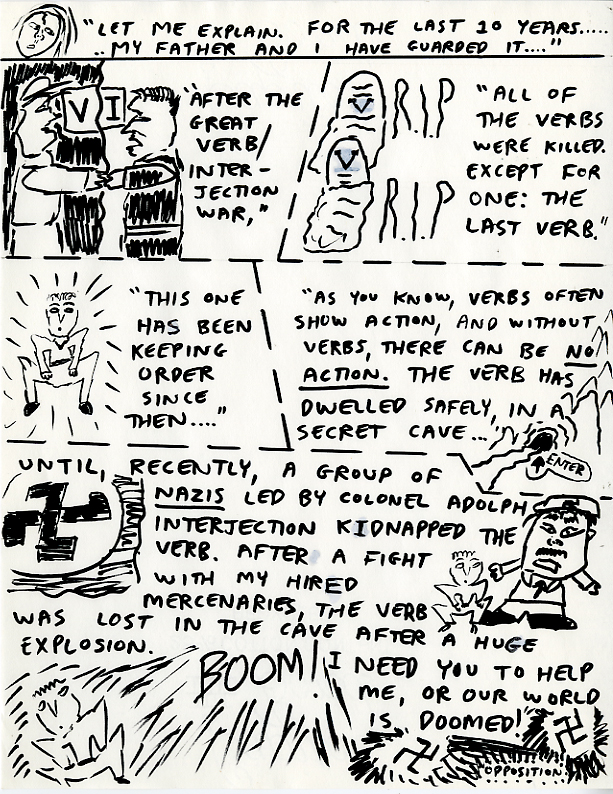 "LET ME EXPLAIN. FOR THE LAST 10 YEARS.....
..MY FATHER AND I HAVE GUARDED IT...."
V I
"AFTER THE
GREAT
VERB/
INTER-
JECTION
WAR,"
V
R.I.P
V
R.I.P
"ALL OF
THE VERBS
WERE KILLED.
EXCEPT FOR
ONE: THE
LAST VERB."
"THIS ONE
HAS BEEN
KEEPING
ORDER
SINCE
THEN...."
"AS YOU KNOW, VERBS OFTEN
SHOW ACTION, AND WITHOUT
VERBS, THERE CAN BE NO
ACTION. THE VERB HAS
DWELLED SAFELY, IN A
SECRET CAVE...
ENTER
UNTIL, RECENTLY, A GROUP OF
NAZIS LED BY COLONEL ADOLPH
INTERJECTION KIDNAPPED THE
VERB. AFTER A FIGHT
WITH MY HIRED
MERCENARIES, THE VERB
WAS LOST IN THE CAVE AFTER A HUGE
EXPLOSION.
BOOM!
I NEED YOU TO HELP
ME, OR OUR WORLD
IS DOOMED!"
OPPOSITION